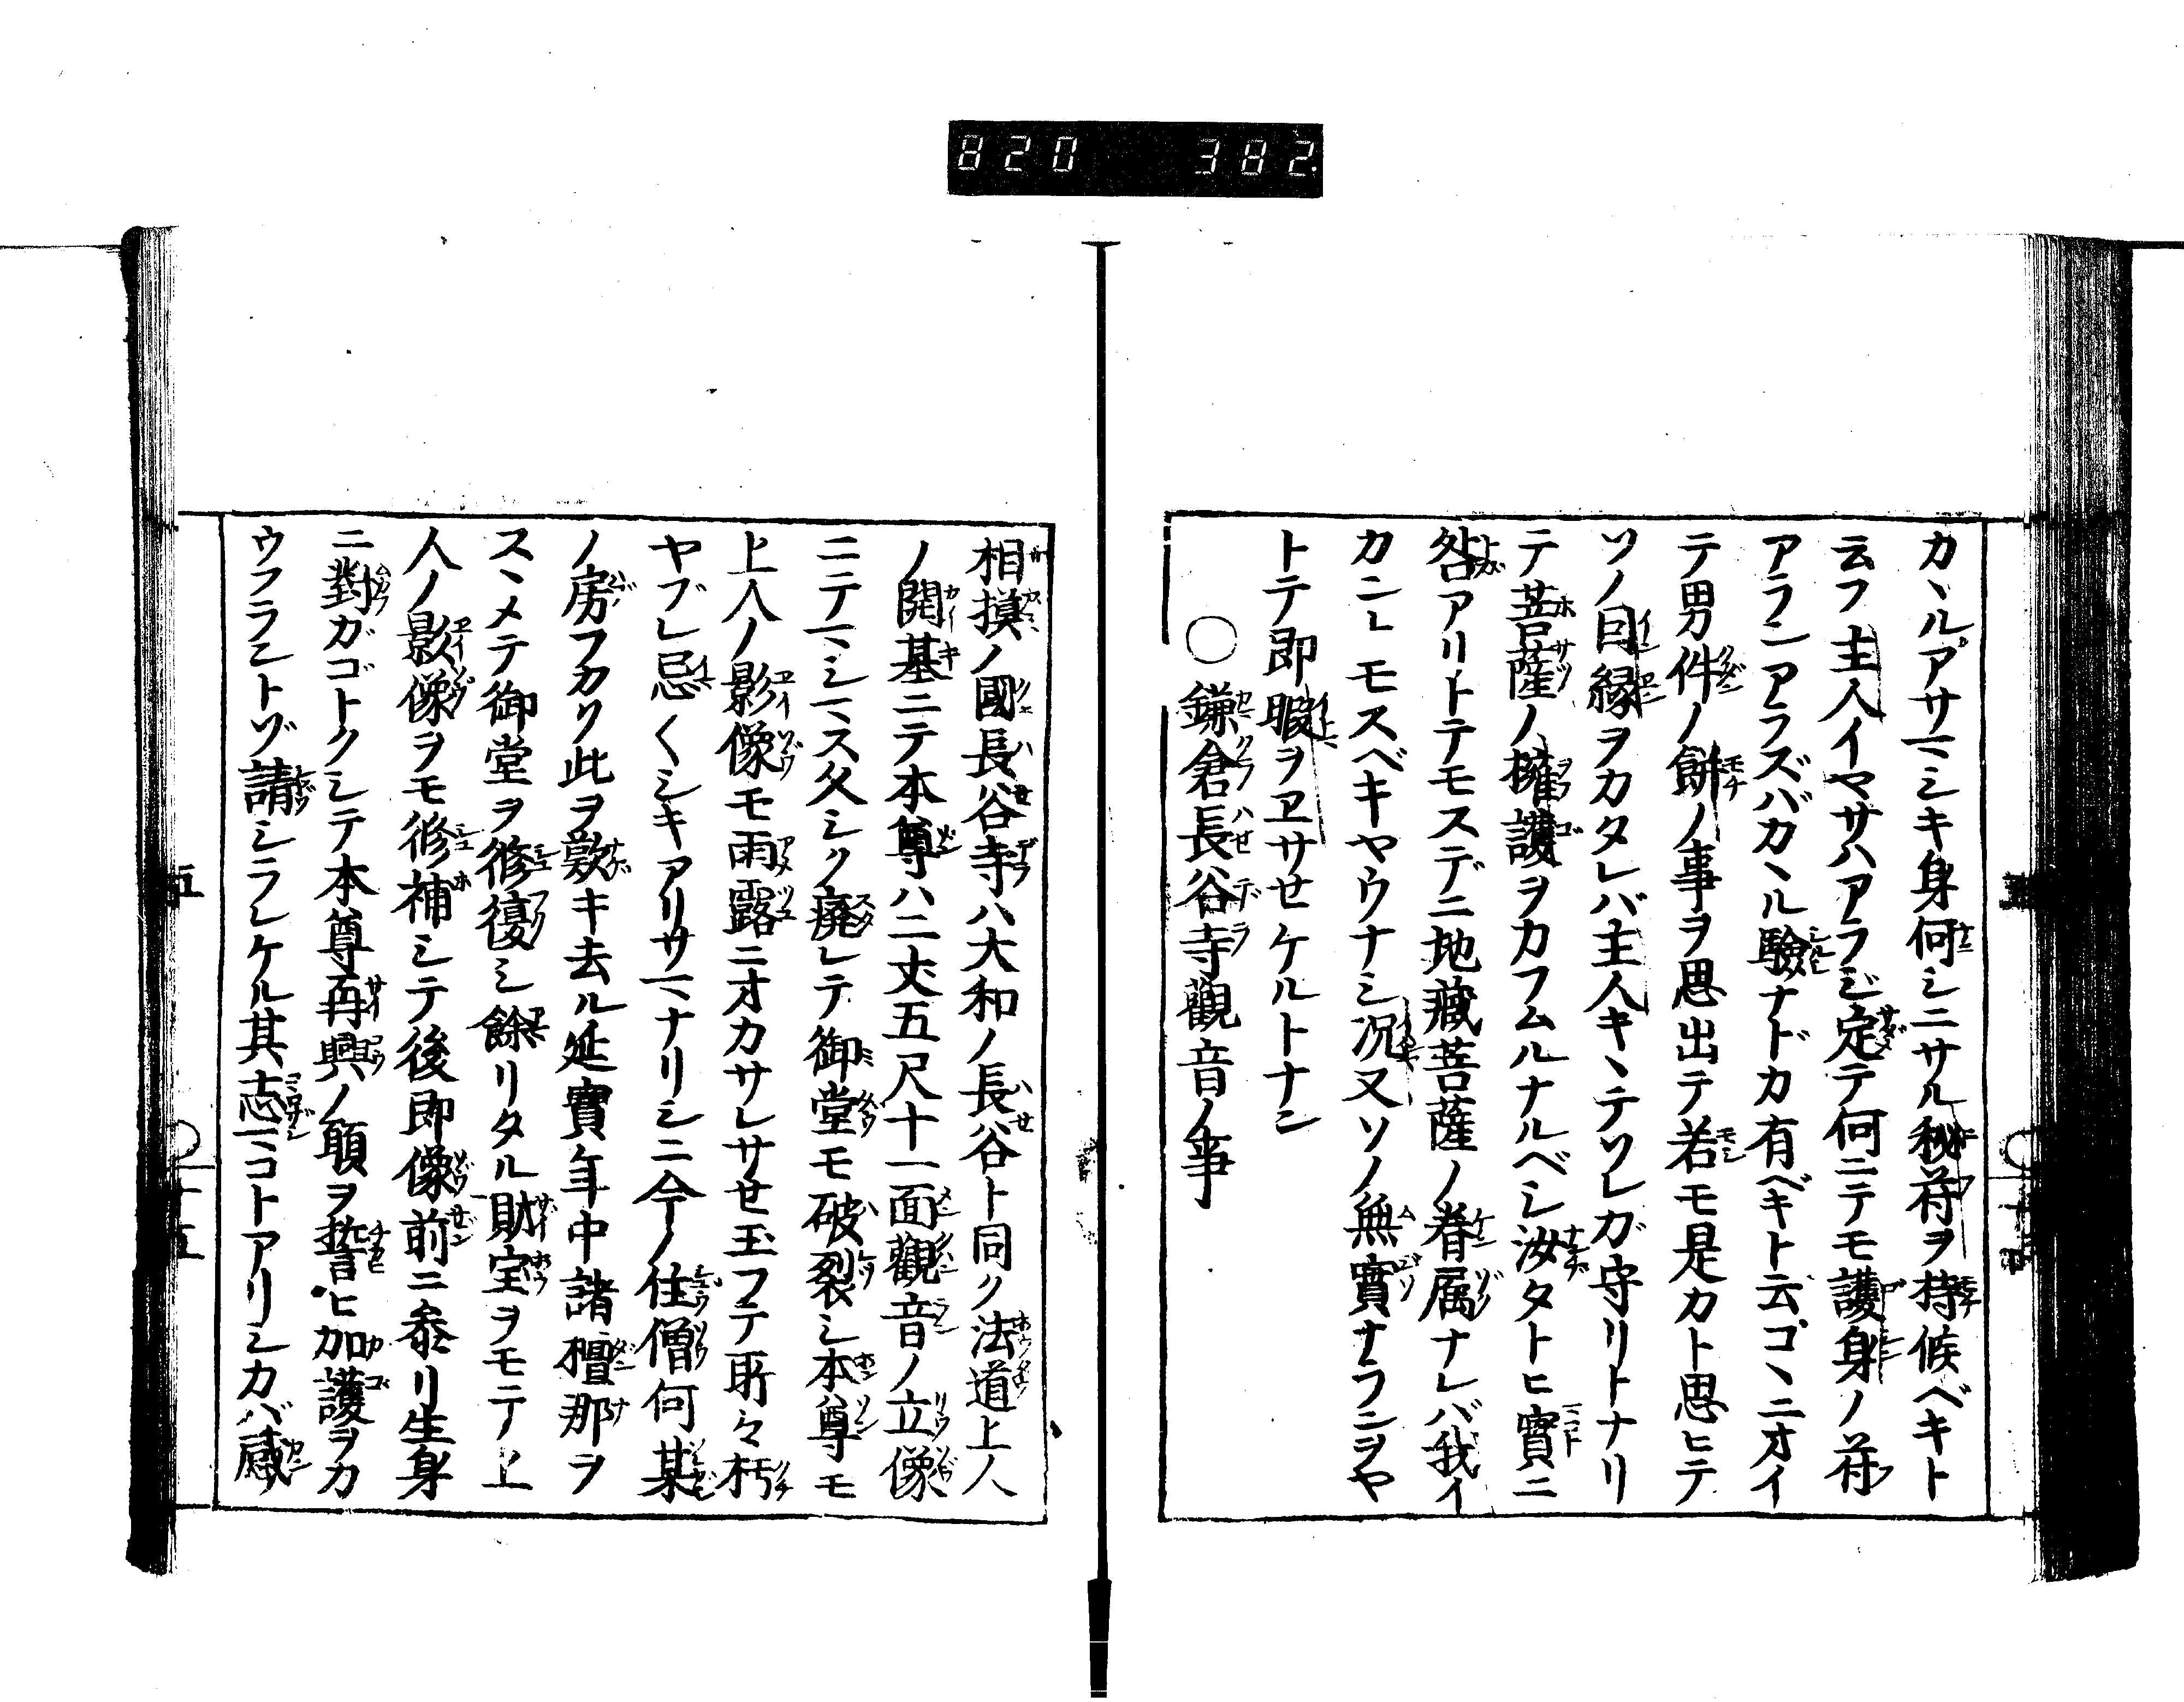 820 382
カヽルアサマシキ身何シニサル秘符ヲ持候ベキト
云フ主人イヤサハアラジ定テ何ニテモ護身ノ符
アランアラズバカヽル驗ナドカ有ベキト云ゴヽニオイ
テ男件ノ餅ノ事ヲ思出テ若モ是カト思ヒテ
ソノ因縁ヲカタレバ主人キヽテソレガ守リトナリ
テ菩薩ノ擁護ヲカフムルナルベシ汝タトヒ實ニ
咎アリトテモスデニ地藏菩薩ノ眷属ナレバ我イ
カニトモスベキヤウナシ況又ソノ無實ナランヲヤ
トテ即暇ヲヱサせケルトナン
○鎌倉長谷寺觀音ノ事
相摸ノ國長谷寺ハ大和ノ長谷ト同ク法道上人
ノ開基ニテ本尊ハ二丈五尺十一面觀音ノ立像
ニテマシマス久シク廢レテ御堂モ破裂シ本尊モ
上人ノ影像モ雨露ニオカサレサせ玉フテ所々朽
ヤブレ忌〱シキアリサマナリシニ今ノ住僧何某
ノ房フカク此ヲ歎キ去ル延寶年中諸檀那ヲ
スヽメテ御堂ヲ修復シ餘リタル財宝ヲモテ上
人ノ影像ヲモ修補シテ後即像前ニ參リ生身
ニ對ガゴトクシテ本尊再興ノ願ヲ誓ヒ加護ヲカ
ウフラントゾ請シラレケル其志マコトアリシカバ感